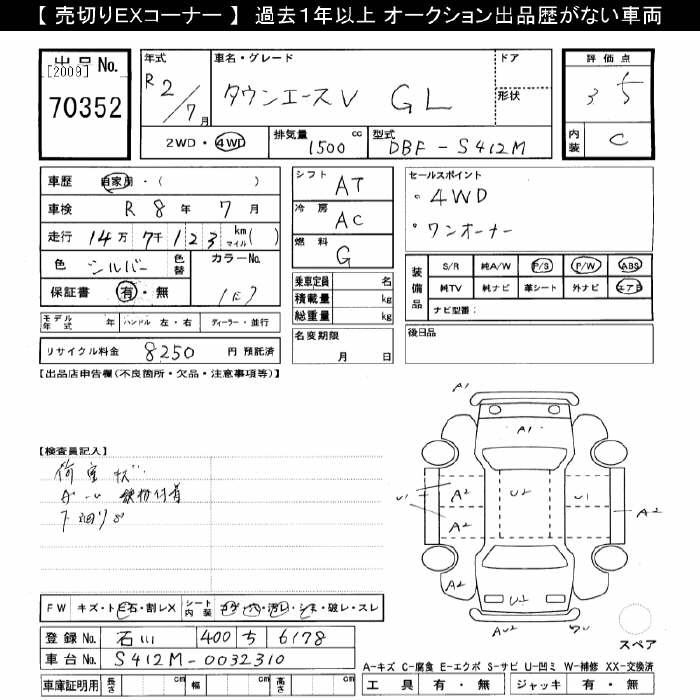 【 売切りEXコーナー 】 過去１年以上 オークション出品歴がない車両
出品 No.
[2009]
70352
年式
R2/7月
車名・グレード
タウンエースV GL
ドア
形状
2WD・4WD
排気量 1500 cc
型式 DBF-S412M
評価点
3.5
内装 C
車歴 自家用・( )
車検 R 8年 7月
走行 14万7千123 km マイル( )
色 シルバー 色替 カラーNo.
保証書 有・無
シフト AT
冷房 AC
燃料 G
乗車定員 名
積載量 kg
総重量 kg
セールスポイント
・4WD
・ワンオーナー
装備品
S/R 純A/W P/S P/W ABS
純TV 純ナビ 革シート 外ナビ エアB
ナビ型番：
モデル年式 年 ハンドル 左・右 ディーラー・並行
リサイクル料金 8250 円 預託済
名変期限 月 日
後日品
【出品店申告欄(不良箇所・欠品・注意事項等)】
【検査員記入】
荷室キズ
下廻りサ
A1
A1
U1 A2 U2 U1
A2
A2
A2 U2 A2
AU2
スペア
FW キズ・トビ石・割レX シート内装 コゲ・穴・汚レ・シミ・破レ・スレ
登録 No. 石川 400 ち 6178
車台 No. S412M-0032310
車庫証明用 長さ cm 幅 cm 高さ cm
A-キズ C-腐食 E-エクボ S-サビ U-凹ミ W-補修 XX-交換済
工具 有・無 ジャッキ 有・無